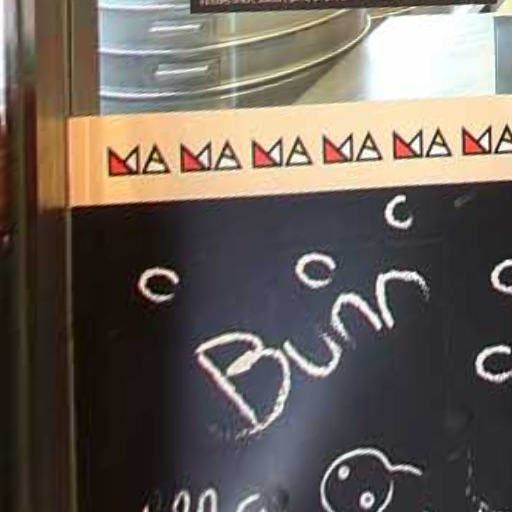 MA MA MA MA MA MA
Bunn